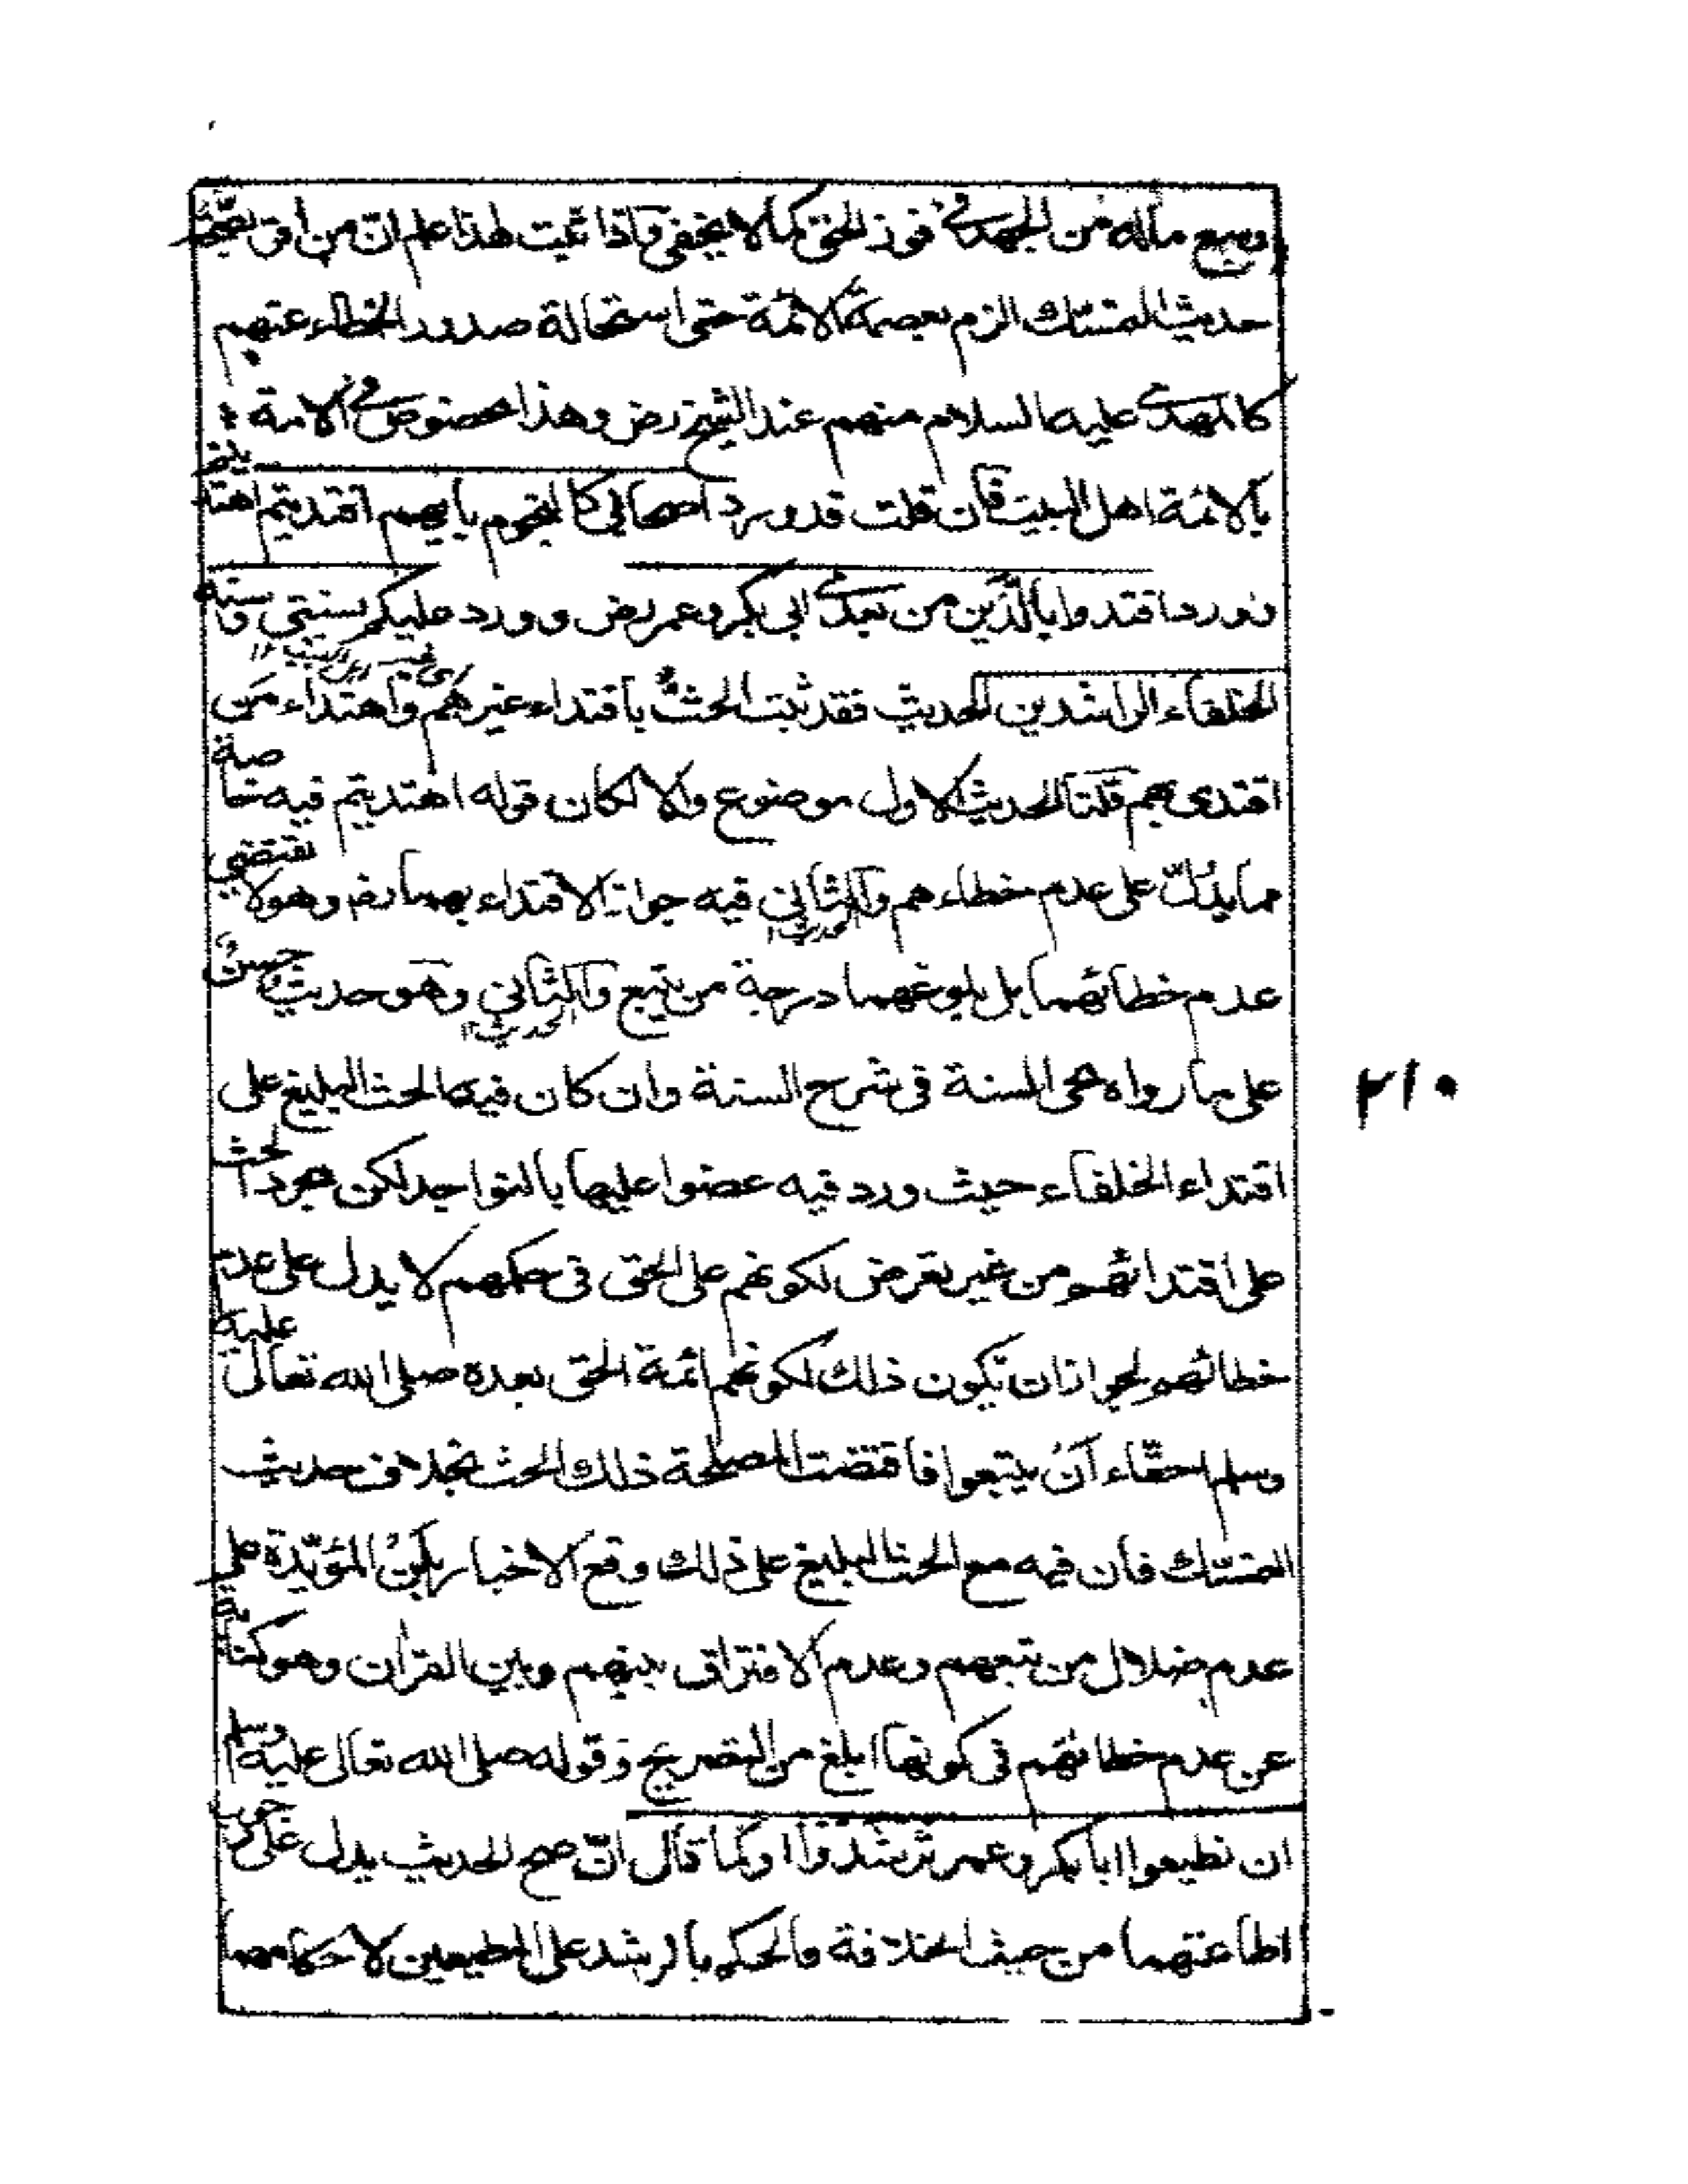 وسع ماله من الجهد في فوز الحق كما لا يخفى وَاذا ثبت هذا علم انّ من
حديث التمسّك الزم بعصمة الائمّة حتى استحالة صدور الخطاء عنهم
كالمهدى عليه السلام منهم عند الشيخ رض وهذا مخصوص في الامة
بالائمة اهل البيت فأن قلت قد ورد اصحابي كالنجوم بايهم اقتديتم اهتديتم
وورد اقتدوا بالذَين من بعدى ابي بكر وعمر رض وورد عليكم بسنتي وسنة
الخلفاء الراشدين الحديث فقد ثبت الحثّ باقتداء غيرهم واهتداء مَن
اقتدى بهم قلنا الحديث الاول موضوع والا لكان قوله اهتديتم فيه خاصة
مما يدُلّ على عدم خطاءهم والثاني فيه جواز الاقتداء بهما رض وهو لا يقتضي
الحديث
عدم خطائهما بل بلوغهما درجة من يتبع والثاني وهو حديث حسنٌ
الحديث
على ما رواه محى السنة فى شرح السنة وان كان فيه الحث البليغ على
اقتداء الخلفاء حيث ورد فيه عضوا عليها بالنواجد لكن مجرد الحث
على اقتدائهم من غير تعرض لكونهم على الحق فى حكمهم لا يدل على عدم
خطائهم لجواز ان تكون ذلك لكونهم ائمة الحق بعده صلى الله تعالى عليه
وسلم احقّاء اَنْ يتبعوا فاقتضت المصلحة ذلك الحث بخلاف حديث
التمسّك فأن فيه مع الحث البليغ على ذلك وقع الاخبار المؤيّدة على
عدم ضلال من تبعهم وعدم الافتراق بينهم وبين القرأن وهو كناية
عن عدم خطائهم فى كونها ابلغ من التصريح وَقوله صلى الله تعالى عليه وسلم
ان تطيعوا ابا بكر وعمر ترشدوا اوكما قال انّ صح الحديث يدل على وجوب
اطاعتهما من حيث الخلافة والحكم بالرشد على المطيعين لاحكامهما
٢١٠